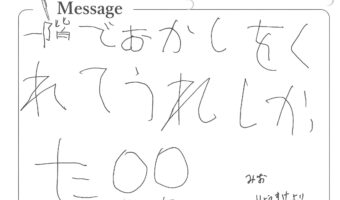 Message
一階でおかしをく
れてうれしか
た〇〇
みお
より